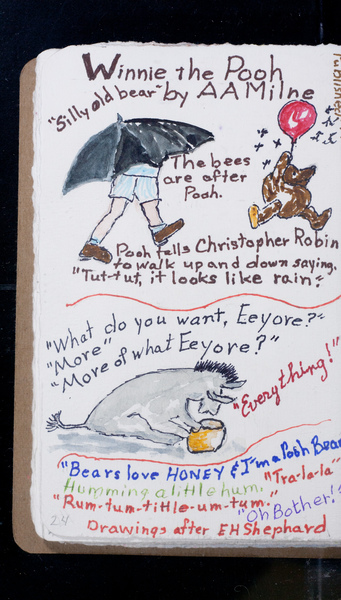 Winnie the Pooh
"Silly old bear" by A A Milne
Publishe
The bees
are after
Pooh.
Pooh tells Christopher Robin
to walk up and down saying,
"Tut-tut, it looks like rain."
"What do you want, Eeyore?"
"More"
"More of what Eeyore?"
"Everything!"
"Bears love HONEY & I'm a Pooh Bear
Humming a little hum. "Tra-la-la"
"Rum-tum-tittle-um-tum."
"Oh Bother!"
24 Drawings after EH Shephard